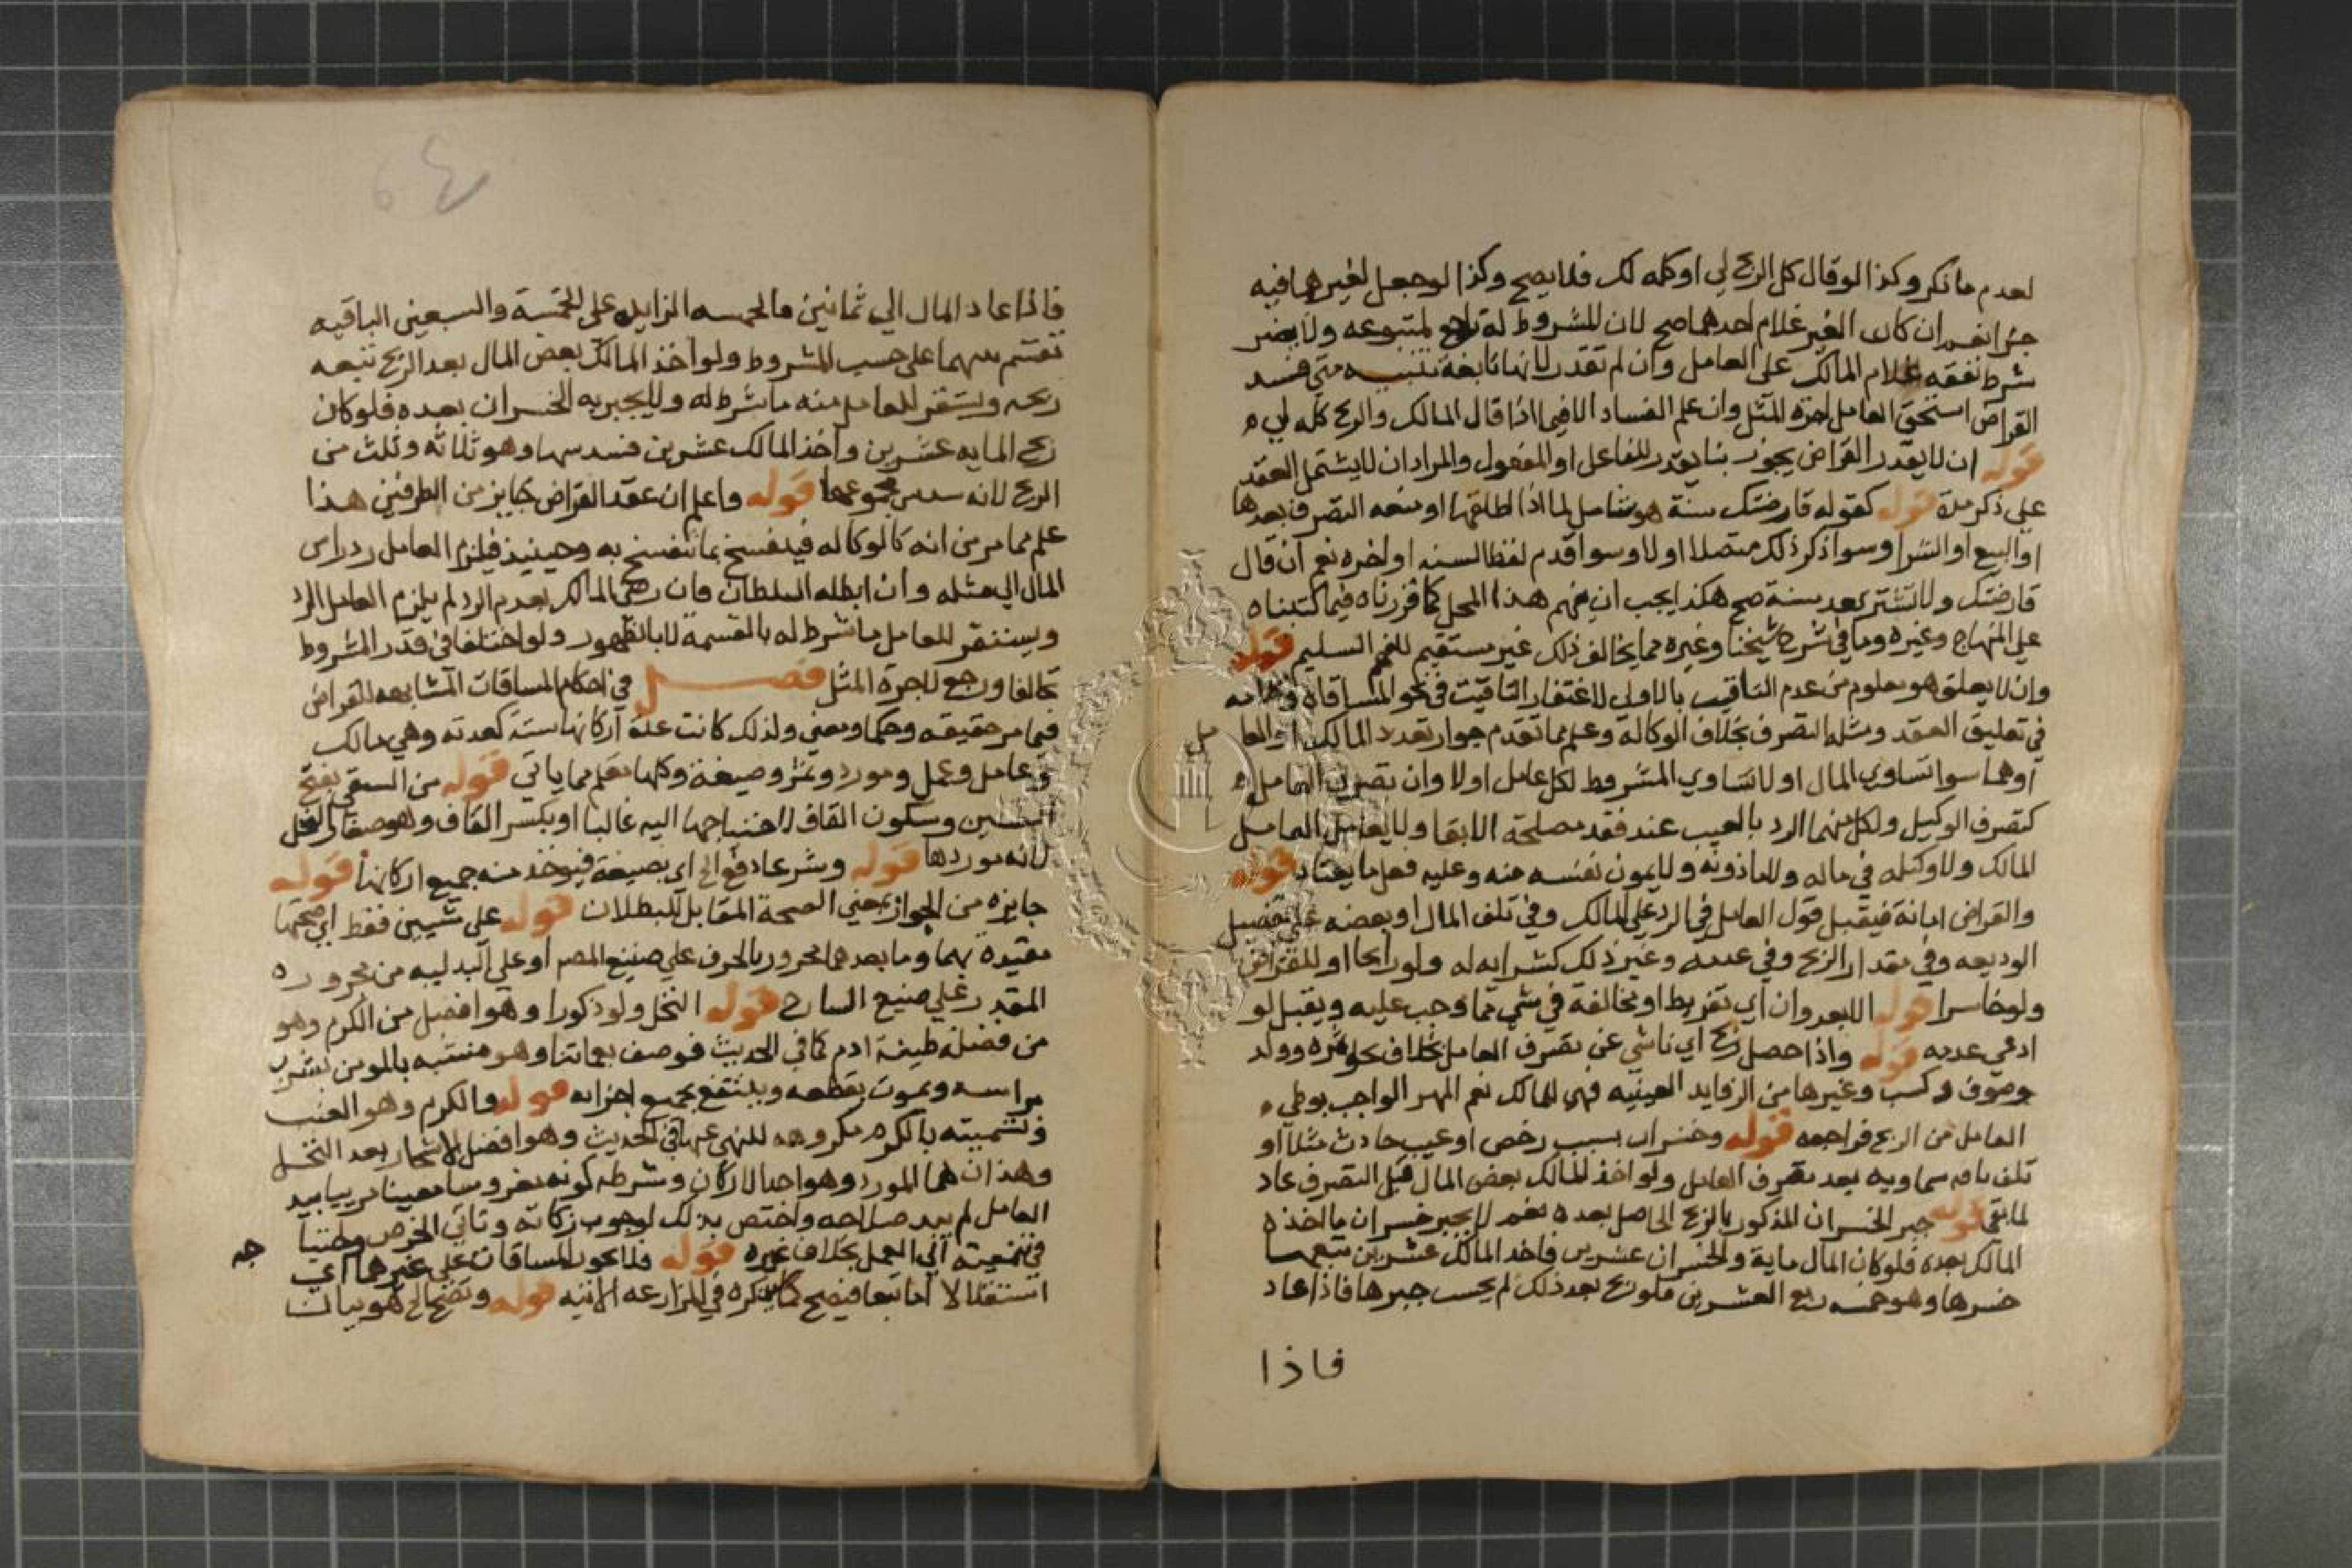 لعدم ما ذكر وكذا لو قال كل الربح لي او كله لك فلا يصح وكذا لو جعل لغيرهما فيه
جزا نعم ان كان الغير غلام احدهما صح لان المشروط له راجع لمتبوعه ولا يضر
شرط نفقه غلام المالك على العامل وان لم تقدر لانها تابعة تنبيه متي فسد
القراض استحق العامل اجرة المثل وان علم الفساد الا فيما اذا قال المالك والربح كله لي
قوله ان لا يقدر القراض يجوز بنا يقدر للفاعل او المفعول والمراد ان لا يشتمل العقد
على ذكر مدة قوله كقوله قارضتك سنة هو شامل لما اذا اطلقها او منعه التصرف بعدها
او البيع او الشرا وسوا ذكر ذلك متصلا اولا وسوا قدم لفظ السنه او اخره نعم ان قال
قارضتك ولا تشتر بعد سنة صح هكذا يجب ان يفهم هذا المحل كما قررناه فيما كتبناه
علي المنهاج وغيره وما في شرح شيخنا وغيره مما يخالف ذلك غير مستقيم للفهم السليم قوله
وان لا يعلق هو معلوم من عدم التاقيت بالاولى لاغتفار التاقيت في نحو المساقاة
في تعليق العقد ومثله التصرف بخلاف الوكالة وعلم مما تقدم جواز تعدد المالك او العامل
او هما سوا تساوي المال اولا تساوي المشروط لكل عامل اولا وان تصرف العامل
كتصرف الوكيل ولكل منهما الرد بالعيب عند فقد مصلحة الابقا ولا يعامل العامل
المالك ولا وكيله في ماله ولا ماذونه ولا يمون نفسه منه وعليه فعل ما يعتاد قوله
والقراض امانة فيقبل قول العامل في الرد على المالك وفي تلف المال او بعضه على تفصيل
الوديعه وفي مقدار الربح وفي عدمه وغير ذلك كشرايه له ولو رابحا او للقراض
ولو خاسرا قوله الا بعدوان اي تفريط او مخالفة في شي مما وجب عليه ويقبل لو
ادعى عدمه قوله واذا حصل ربح اي ناشي عن تصرف العامل بخلاف نحو ثمره وولد
وصوف وكسب وغيرها من الزوايد العينيه فهي للمالك نعم المهر الواجب بوطي
العامل من الربح فراجعه قوله وخسران بسبب رخص او عيب حادث مثلا او
تلف بافه سماويه بعد تصرف العامل ولو اخذ المالك بعض المال قبل التصرف عاد
لما بقي قوله جبر الخسران المذكور بالربح الحاصل بعده نعم لا يجبر خسران ما اخذه
المالك بعده فلو كان المال ماية والخسران عشرين فاخذ المالك عشرين تتبعها
خسرها وهو خمسه ربع العشرين فلو ربح بعد ذلك لم يحسب جبرها فاذا عاد
فاذا
فاذا عاد المال الي ثمانين فالخمسه الزايده على الخمسة والسبعين الباقيه
تقسم بينهما على حسب المشروط ولو اخذ المالك بعض المال بعد الربح تبعه
ربحه ويستقر للعامل منه ما شرط له ولا يجبر به الخسران بعده فلو كان
ربح المايه عشرين واخذ المالك عشرين فسدسها وهو ثلاثه وثلث من
الربح لانه سدس مجموعها قوله واعلم ان عقد القراض جايز من الطرفين هذا
علم مما مر من انه كالوكاله فينفسخ بما تنفسخ به وحينيذ فيلزم العامل رد راس
المال الي مثله وان ابطله السلطان فان رضى المالك بعدم الرد لم يلزم العامل الرد
ويستقر للعامل ما شرط له بالقسمة لا بالظهور ولو اختلفا في قدر المشروط
تحالفا ورجع لاجرة المثل فصل في احكام المساقات المشابهه للقراض
فيما مر حقيقه وحكما ومعني ولذلك كانت عدة اركانها ستة كعدته وهي مالك
وعامل وعمل ومورد وثمر وصيغة وكلها تعلم مما ياتي قوله من السقي بفتح
السين وسكون القاف لاحتياجها اليه غالبا او بكسر القاف وهو صغار النخل
لانه موردها قوله وشرعا دفع الخ اي بصيغة فيوخذ منه جميع اركانها قوله
جايزة من الجواز بمعني الصحة المقابل للبطلان قوله على شيين فقط اي صحتها
مقيدة بهما وما بعدهما مجرور بالحرف علي صنيع المصم او علي البدليه من مجروره
المقدر علي صنيع الشارح قوله النخل ولو ذكورا وهو افضل من الكرم وهو
من فضلة طينة ادم كما في الحديث فوصف بعماتنا وهو منتبه بالمومن بشرب
براسه ويموت بقطعه وينتفع بجميع اجزايه قوله والكرم وهو العنب
وتسميته بالكرم مكروهه للنهي عنها في الحديث وهو افضل الاشجار بعد النخل
وهذان هما المورد وهو احد الاركان وشرطه كونه مغروسا معينا مرييا بيد
العامل لم يبد صلاحه واختص بذلك لوجوب زكاته وتاتي الخرص
في تنميته الي العمل بخلاف غيره قوله فلا تجوز المساقات على غيرهما اي
استقلالا اما تبعا فيصح كما سيذكره في المزارعه الاتيه قوله وتصح الخ هو بيان